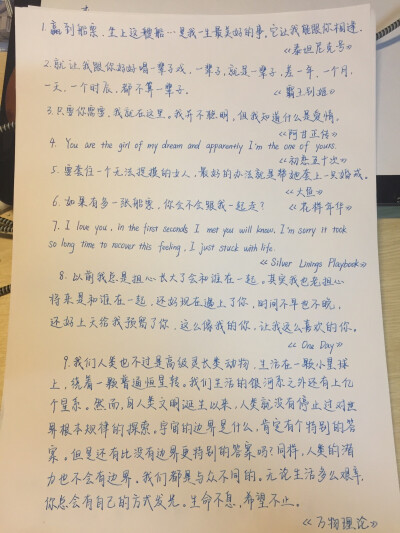 1. 赢到船票，坐上这艘船…是我一生最美好的事，它让我能跟你相逢.
《泰坦尼克号》
2. 就让我跟你好好唱一辈子戏，一辈子，就是一辈子，差一年，一个月，
一天，一个时辰，都不算一辈子。 《霸王别姬》
3. 只要你需要，我就在这里。我并不聪明，但我知道什么是爱情。
《阿甘正传》
4. You are the girl of my dream and apparently I'm the one of yours.
《初恋五十次》
5. 要套住一个无法捉摸的女人，最好的办法就是帮她套上一只婚戒。
《大鱼》
6. 如果有多一张船票，你会不会跟我一起走？ 《花样年华》
7. I love you, in the first seconds I met you will know, I'm sorry it took
so long time to recover this feeling, I just stuck with life.
《Silver Linings Playbook》
8. 以前我总是担心长大了会和谁在一起。其实我也老担心
将来是和谁在一起，还好现在遇上了你，时间不早也不晚，
还好上天给我预留了你，这么像我的你，让我这么喜欢的你。
《One Day》
9. 我们人类也不过是高级灵长类动物，生活在一颗小星球
上，绕着一颗普通恒星转。我们生活的银河系之外还有上亿
个星系。然而，自人类文明诞生以来，人类就没有停止过对世
界根本规律的探索。宇宙的边界是什么，肯定有个特别的答
案。但是还有比没有边界更特别的答案吗？同样，人类的潜
力也不会有边界。我们都是与众不同的。无论生活多么艰辛，
你总会有自己的方式发光。生命不息，希望不止。
《万物理论》